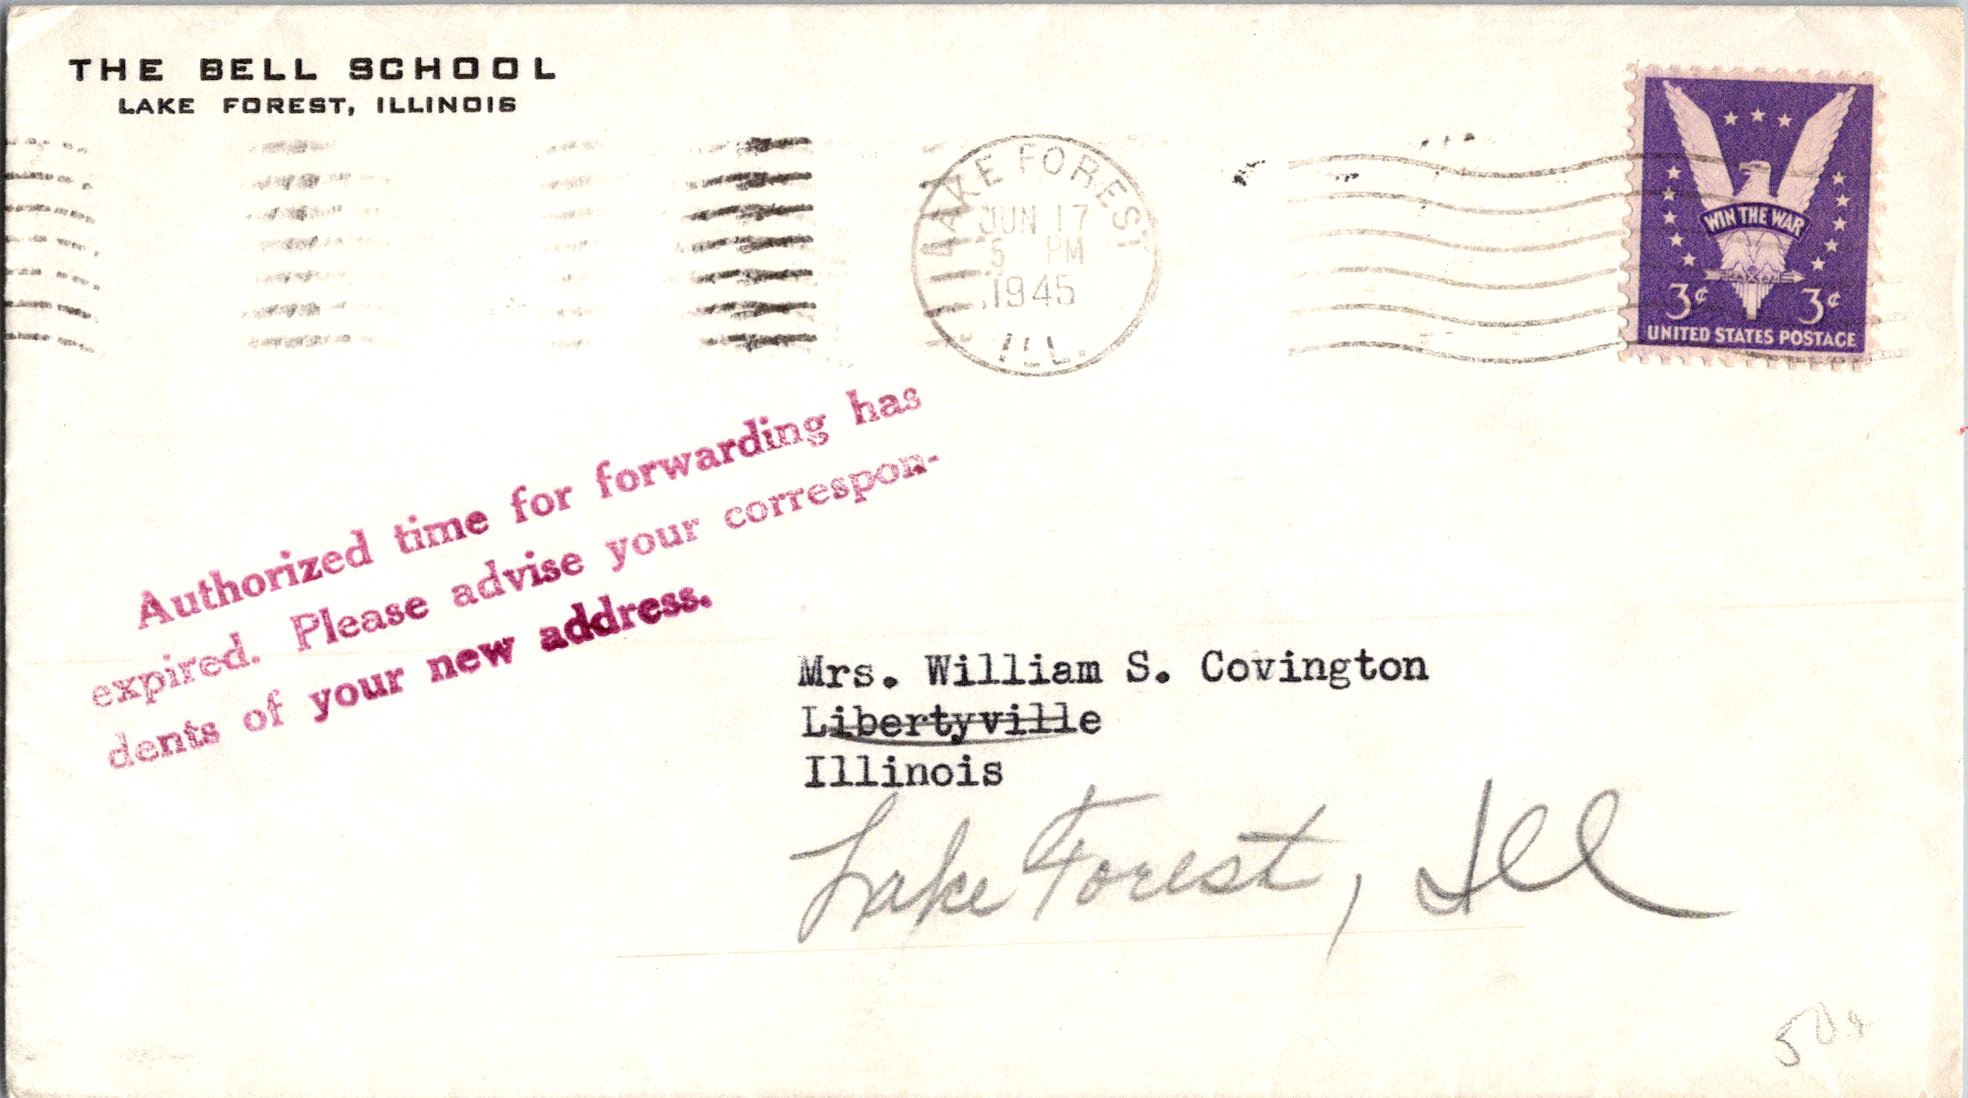 THE BELL SCHOOL
LAKE FOREST, ILLINOIS
LAKE FOREST
JUN 17
5 PM
1945
ILL.
WIN THE WAR
3¢ 3¢
UNITED STATES POSTAGE
Authorized time for forwarding has
expired. Please advise your correspon-
dents of your new address.
Mrs. William S. Covington
Libertyville
Illinois
Lake Forest, Ill